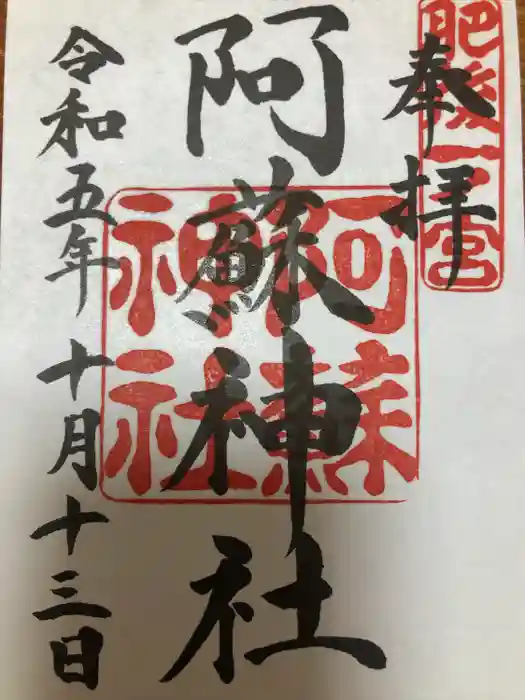 肥後一宮
奉拝
阿蘇神社
阿蘇
神社
令和五年十月十三日